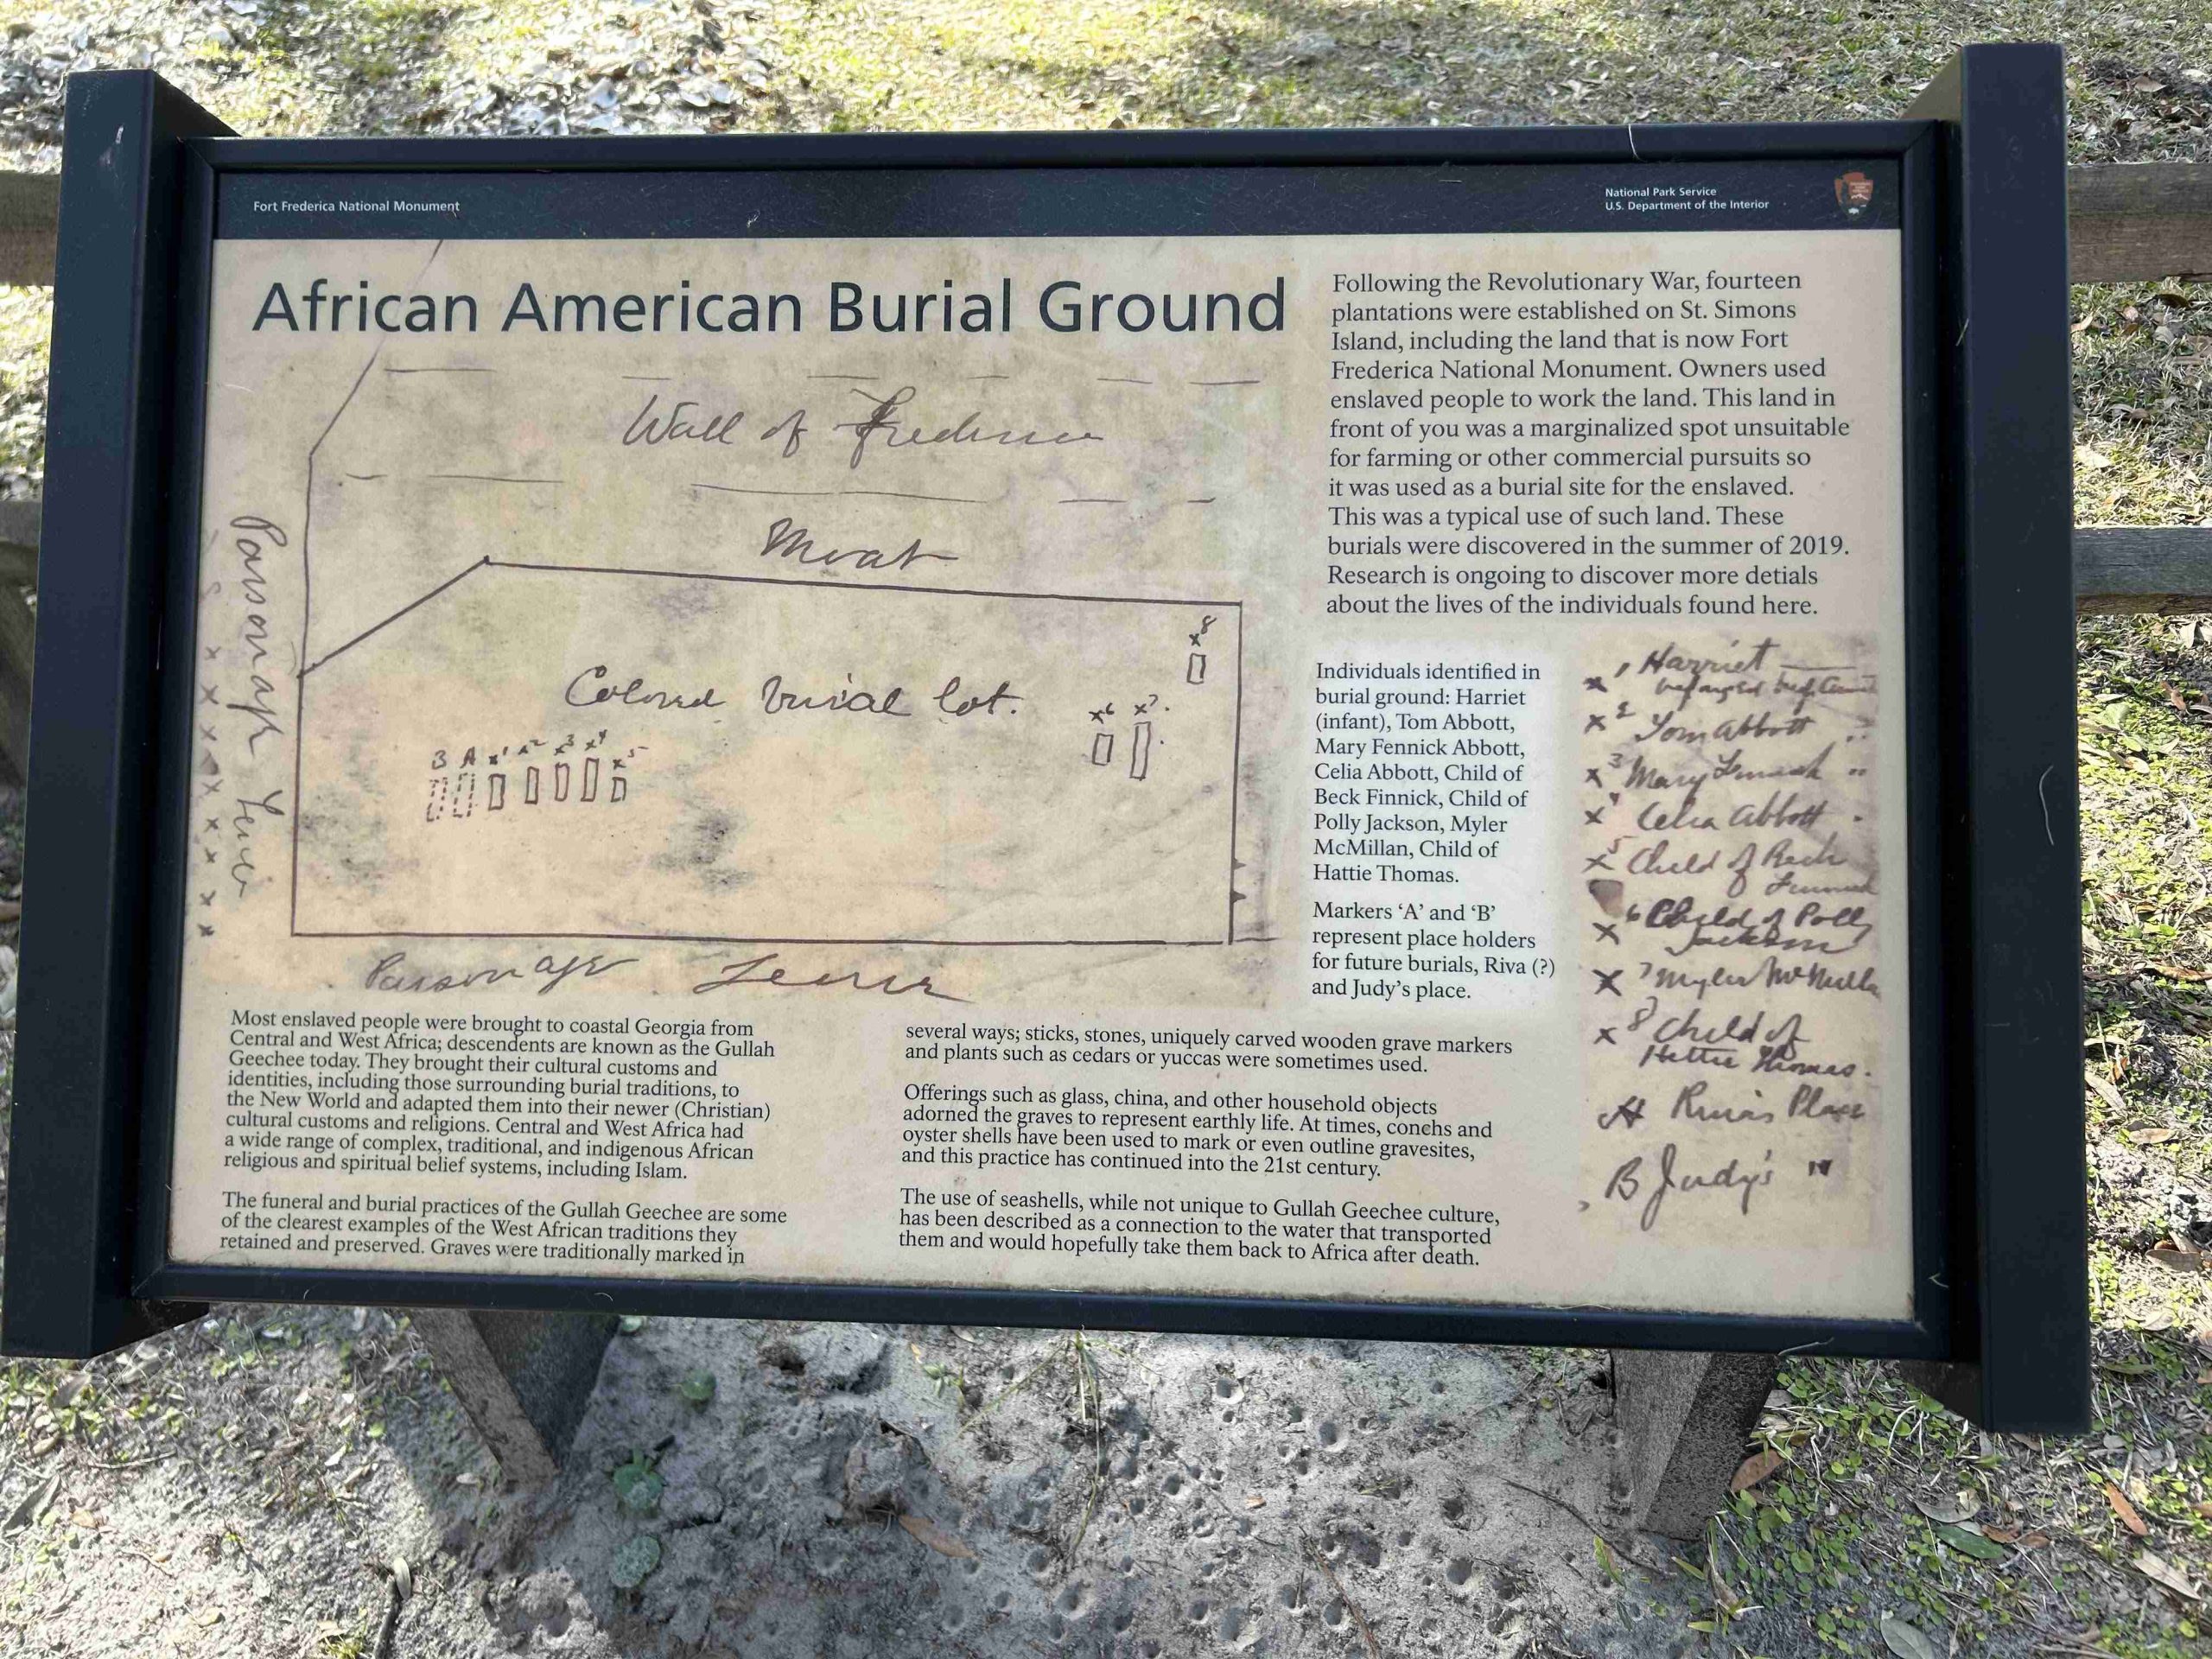 Fort Frederica National Monument
National Park Service
U.S. Department of the Interior
African American Burial Ground
Following the Revolutionary War, fourteen
plantations were established on St. Simons
Island, including the land that is now Fort
Frederica National Monument. Owners used
enslaved people to work the land. This land in
front of you was a marginalized spot unsuitable
for farming or other commercial pursuits so
it was used as a burial site for the enslaved.
This was a typical use of such land. These
burials were discovered in the summer of 2019.
Research is ongoing to discover more detials
about the lives of the individuals found here.
Wall of Frederica
Moat
Parsonage Fence
Colored burial lot.
B A x1 x2 x3 x4 x5
x6 x7
x8
Parsonage Fence
Individuals identified in
burial ground: Harriet
(infant), Tom Abbott,
Mary Fennick Abbott,
Celia Abbott, Child of
Beck Finnick, Child of
Polly Jackson, Myler
McMillan, Child of
Hattie Thomas.
Markers ‘A’ and ‘B’
represent place holders
for future burials, Riva (?)
and Judy’s place.
x 1 Harriet
x 2 Tom Abbott
x 3 Mary
x 4 Celia Abbott
x 5 Child of Beck
x 6 Child of Polly
Jackson
x 7 Myler
x 8 Child of
Hattie Thomas.
A Place
B Judy's "
Most enslaved people were brought to coastal Georgia from
Central and West Africa; descendents are known as the Gullah
Geechee today. They brought their cultural customs and
identities, including those surrounding burial traditions, to
the New World and adapted them into their newer (Christian)
cultural customs and religions. Central and West Africa had
a wide range of complex, traditional, and indigenous African
religious and spiritual belief systems, including Islam.
The funeral and burial practices of the Gullah Geechee are some
of the clearest examples of the West African traditions they
retained and preserved. Graves were traditionally marked in
several ways; sticks, stones, uniquely carved wooden grave markers
and plants such as cedars or yuccas were sometimes used.
Offerings such as glass, china, and other household objects
adorned the graves to represent earthly life. At times, conchs and
oyster shells have been used to mark or even outline gravesites,
and this practice has continued into the 21st century.
The use of seashells, while not unique to Gullah Geechee culture,
has been described as a connection to the water that transported
them and would hopefully take them back to Africa after death.